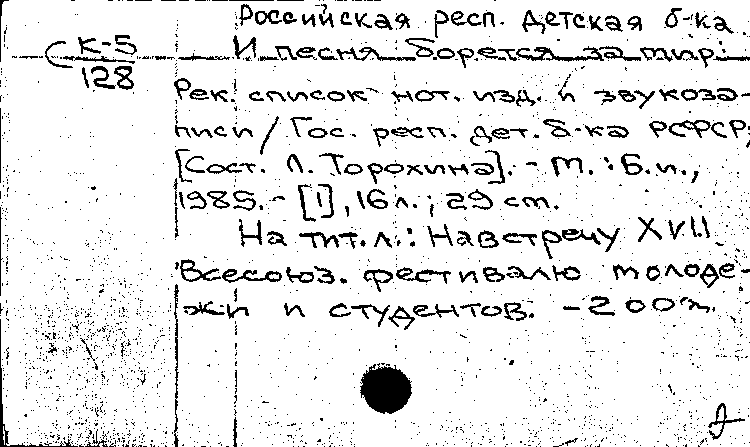 Российская респ. детская б-ка
К-5
128
И песня борется за мир:
Рек. список нот. изд. и звукоза-
писи / Гос. респ. дет. б-ка РСФСР;
[Сост. Л. Торохина]. - М. : Б.и.,
1985. - [1], 16 л. ; 29 cm.
На тит. л.: Навстречу XVII
Всесоюз. фестивалю молоде-
жи и студентов. - 200